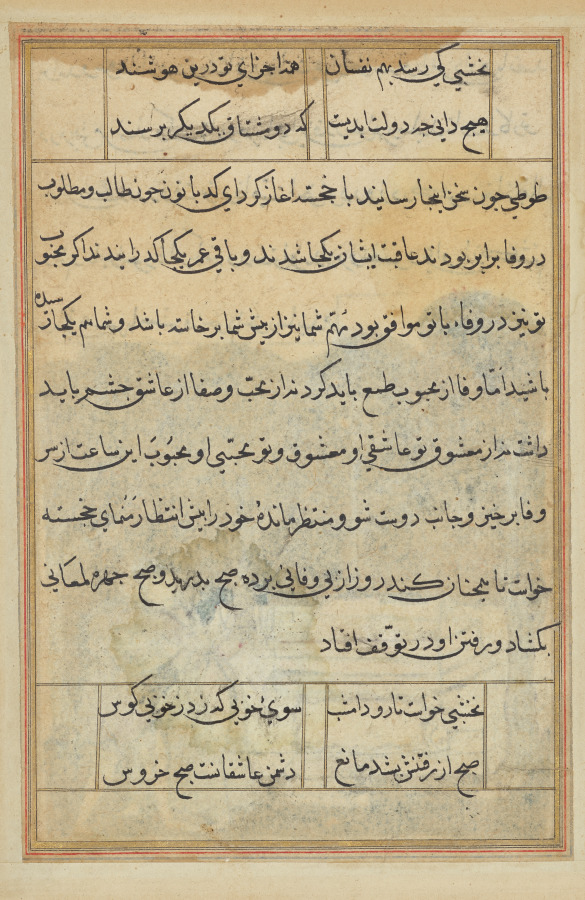 نخشبی کی رسد بهم نفسان همه اجزای تو درین هوشند
هیچ دانی چه دولت ابدیت که دو مشتاق یکدیگر برسند
طوطی چون سخن اینجا رسانید با خجسته اغاز کرد ای کدبانو چون طالب و مطلوب
در وفا برابر بودند عاقبت ایشان یکجا شدند و باقی عمر یکجا گذرانیدند اگر محبوب
تو نیز در وفاء با تو موافق بود تهم شما نیز از پیش شما برخاسته باشد و شما هم یکجا تر سیده
باشید اما وفا از محبوب طمع باید کرد نه از محب و صفا از عاشق چشم باید
داشت نه از معشوق تو عاشقی او معشوق و تو محبی او محبوب این ساعت از سر
وفا برخیز و جانب دوست شو و منتظر مانده خود را بیش انتظار منمای خجسته
خواست تا همچنان کند روز از بی وفایی پرده صبح بدرید و صبح چهره لمعانی
بکشاد و رفتن او در توقف افتاد
نخشبی خواست تا رود امشب سوی خوبی که زد ز خوبی کوس
صبح از رفتنش بشد مانع دشمن عاشقانست صبح خروس